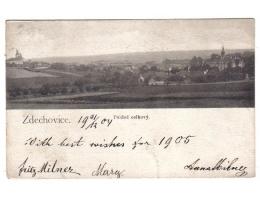 Zdechovice. 19 31/12 04 Pohled celkový.
With best wishes for 1905
Fritz Milner Mary Anna Milner